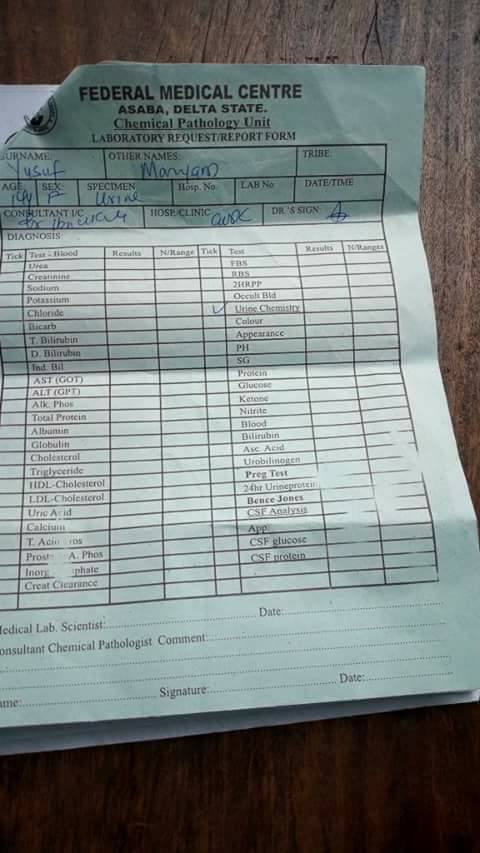 FEDERAL MEDICAL CENTRE
ASABA, DELTA STATE.
Chemical Pathology Unit
LABORATORY REQUEST/REPORT FORM
SURNAME: OTHER NAMES: TRIBE:
Yusuf Maryam
AGE SEX: SPECIMEN Hosp. No. LAB No DATE/TIME
F Urine
CONSULTANT I/C HOSP/CLINIC DR 'S SIGN
DIAGNOSIS
Tick Test - Blood Results N/Range Tick Test Results N/Ranges
Urea FBS
Creatinine RBS
Sodium 2HRPP
Potassium Occult Bld
Chloride ✓ Urine Chemistry
Bicarb Colour
T. Bilirubin Appearance
D. Bilirubin PH
Ind. Bil SG
AST (GOT) Protein
ALT (GPT) Glucose
Alk. Phos Ketone
Total Protein Nitrite
Albumin Blood
Globulin Bilirubin
Cholesterol Asc. Acid
Triglyceride Urobilinogen
HDL-Cholesterol Preg Test
LDL-Cholesterol 24hr Urineprotein
Uric Acid Bence Jones
Calcium CSF Analysis
T. App:
A. Phos CSF glucose
CSF protein
Creat Clearance
Medical Lab. Scientist: Date:
Consultant Chemical Pathologist Comment:
Name: Signature: Date: